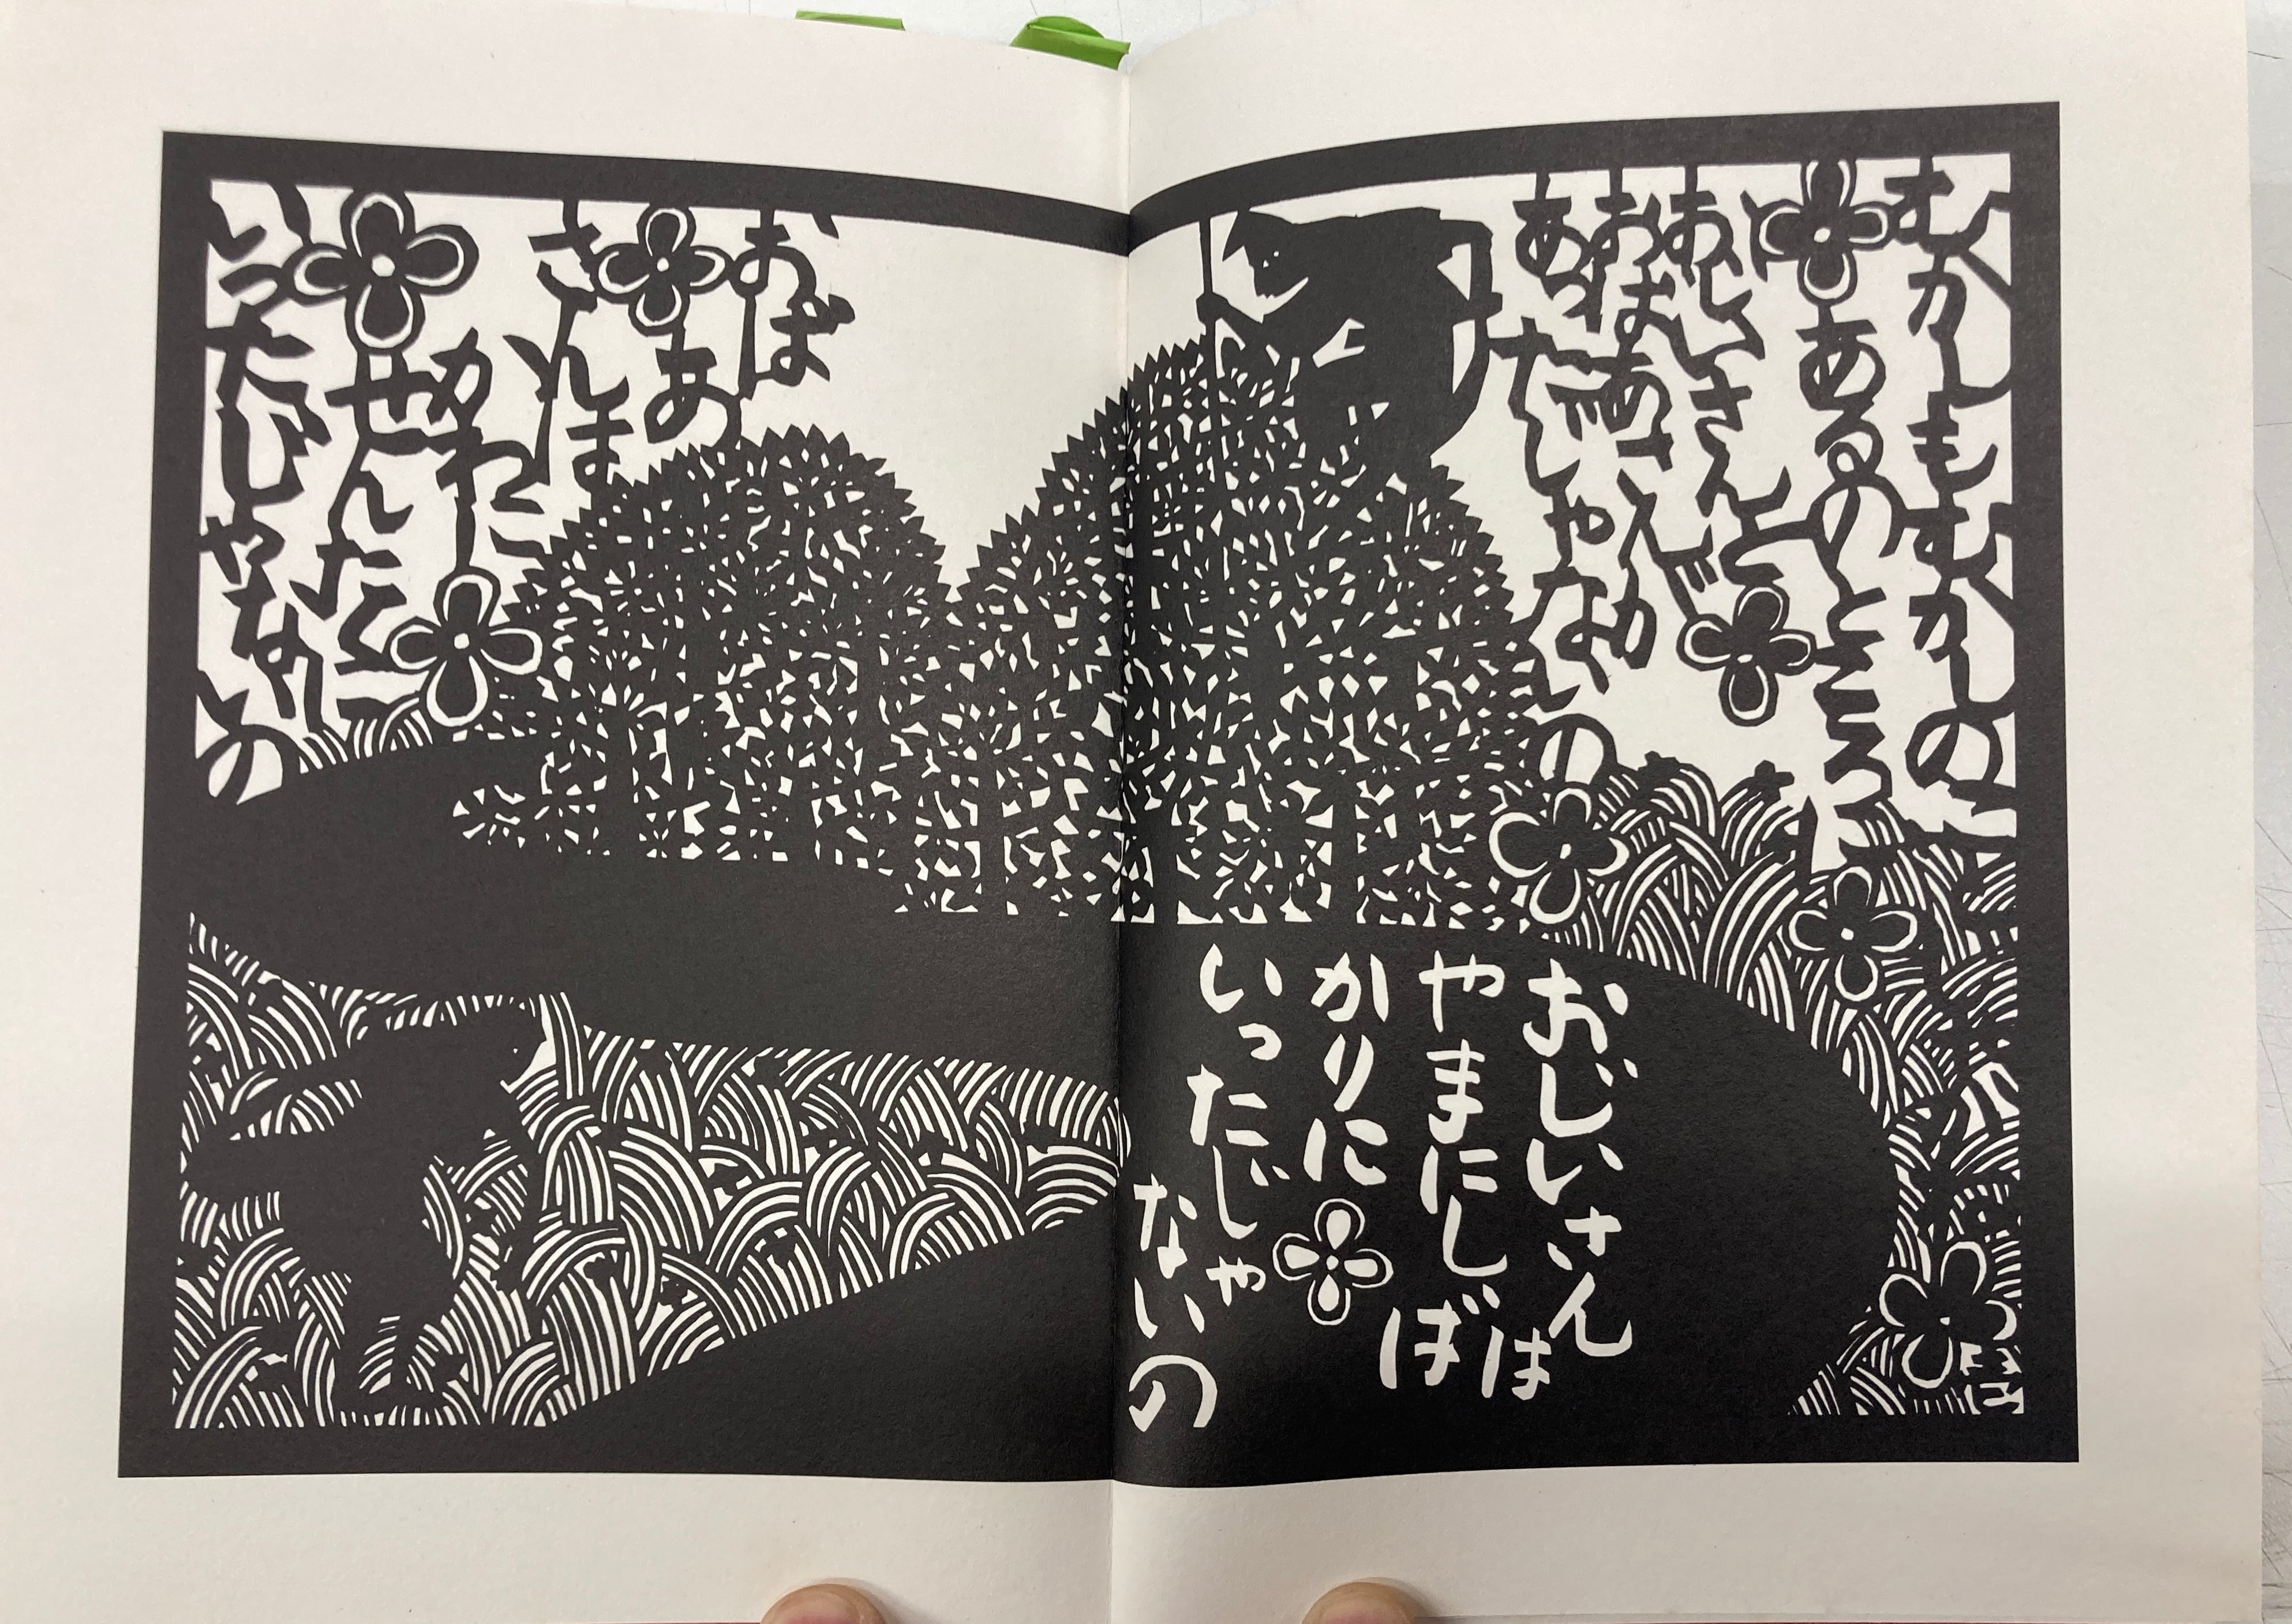 むかしもむかしの
あるのところ
に
おじいさんと
おばあさんが
あったじゃないの
おじいさんは
やまにしば
かりに
いったじゃ
ないの
おば
あ
さんは
かわに
せんたくに
いったじゃないの